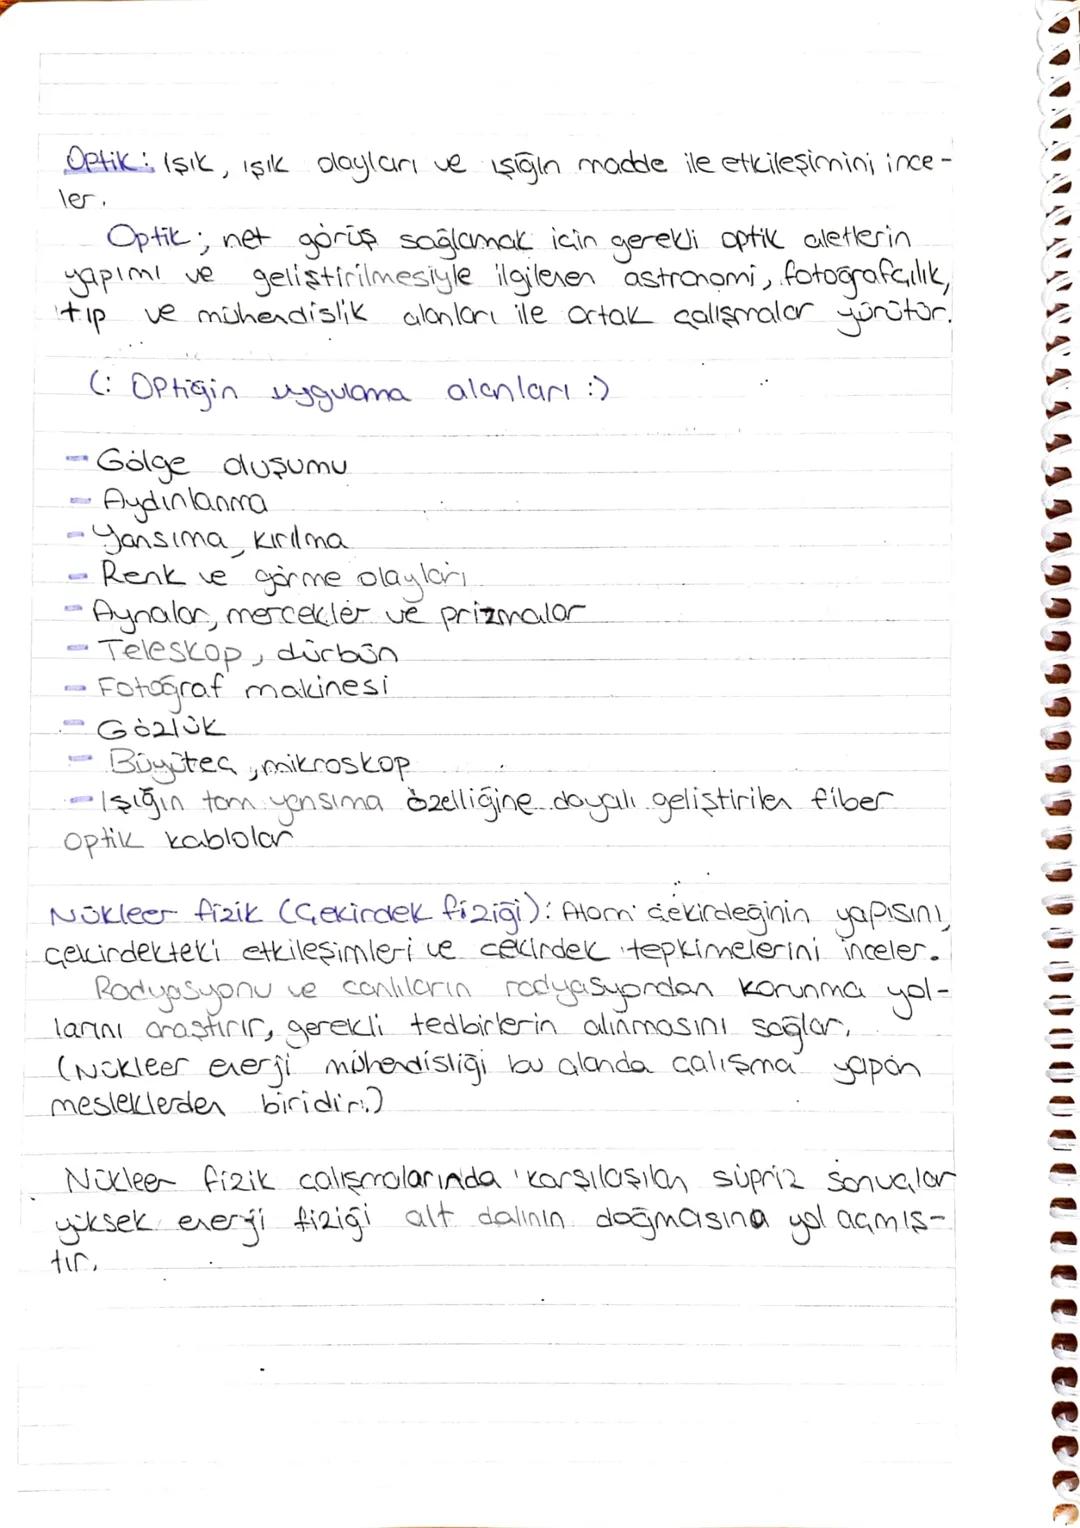 Optik: Işık, ışık olayları ve ışığın madde ile etkileşimini ince-
ler.
Optik; net görüş sağlamak için gerekli optik aletlerin
yapımı ve geliştirilmesiyle ilgilenen astronomi, fotoğrafçılık,
tıp ve mühendislik alanları ile ortak çalışmalar yürütür.
(: Optiğin uygulama alanları :)
- Gölge oluşumu
- Aydınlanma
- Yansıma, kırılma
- Renk ve görme olayları
- Aynalar, mercekler ve prizmalar
- Teleskop, dürbün
- Fotoğraf makinesi
- Gözlük
- Büyüteç, mikroskop
- Işığın tam yansıma özelliğine dayalı geliştirilen fiber
optik kablolar
Nükleer fizik (Çekirdek fiziği): Atom çekirdeğinin yapısını,
çekirdekteki etkileşimleri ve çekirdek tepkimelerini inceler.
Radyasyonu ve canlıların radyasyondan korunma yol-
larını araştırır, gerekli tedbirlerin alınmasını sağlar.
(Nükleer enerji mühendisliği bu alanda çalışma yapan
mesleklerden biridir.)
Nükleer fizik çalışmalarında karşılaşılan süpriz sonuçlar
yüksek enerji fiziği alt dalının doğmasına yol açmış-
tır.